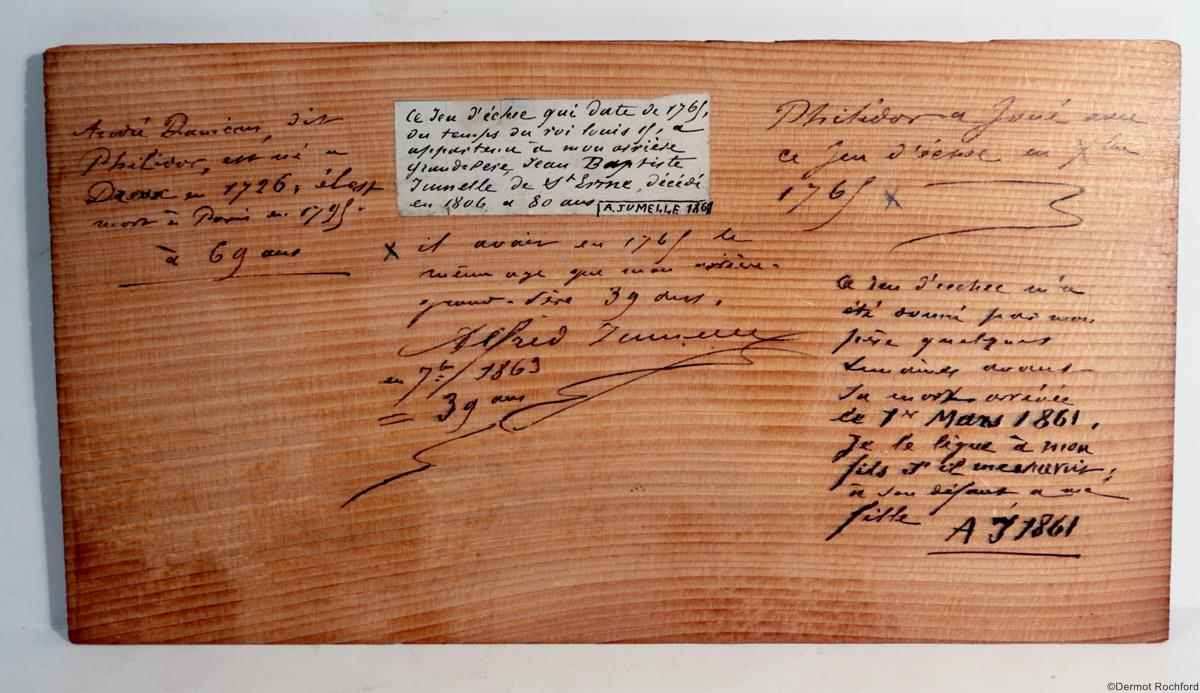 André Danican, dit
Philidor, est né a
Dreux en 1726, il est
mort à Paris en 1795.
à 69 ans
Ce Jeu d'échec qui date de 1765,
du temps du roi louis 15, a
appartenu à mon arrière
grand-père, Jean Baptiste
Jumelle de St Erme, décédé
en 1806 a 80 ans
A. JUMELLE 1861
x il avait en 1765 le
même age que mon arrière-
grand-père 39 ans.
Alfred Jumelle
en 7bre 1863
= 39 ans
Philidor a Joué avec
ce Jeu d'échec en 7bre
1765 x
Ce Jeu d'echec m'a
été donné par mon
père quelques
Semaines avant
Sa mort arrivée
le 1er Mars 1861.
Je le lègue à mon
fils s'il me survit,
à son défaut a ma
fille
A J 1861
©Dermot Rochford